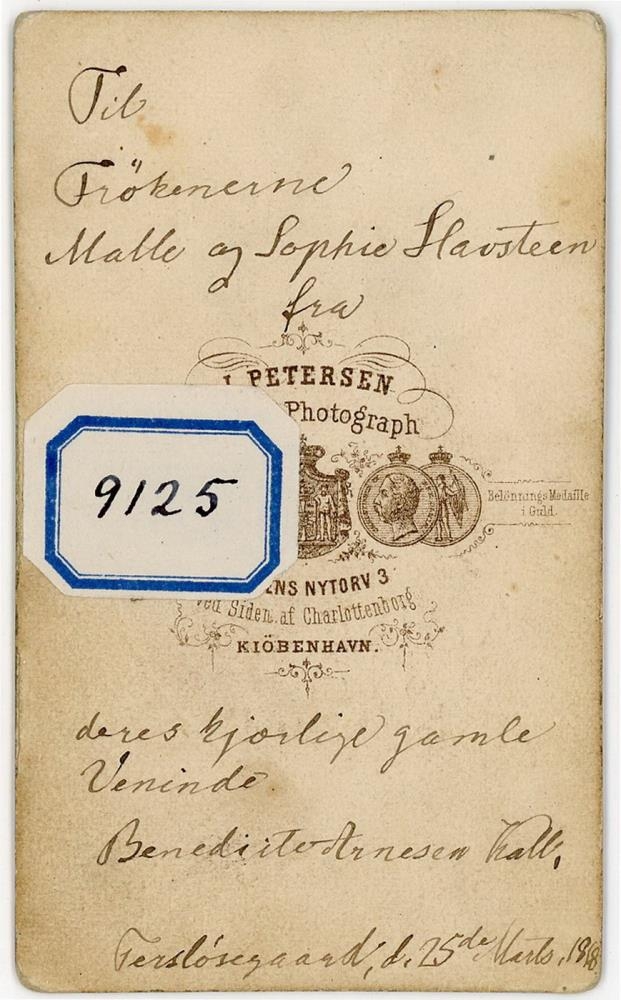 Til
Frökenerne
Malle og Sophie Havsteen
fra
J. PETERSEN
Photograph
Belönnings Medaille
i Guld.
9125
ENS NYTORV 3
ved Siden af Charlottenborg
KIÖBENHAVN.
deres kjærlige gamle
Veninde
Benedicte Arnesen Kall.
Terslösegaard, d. 25de Marts,